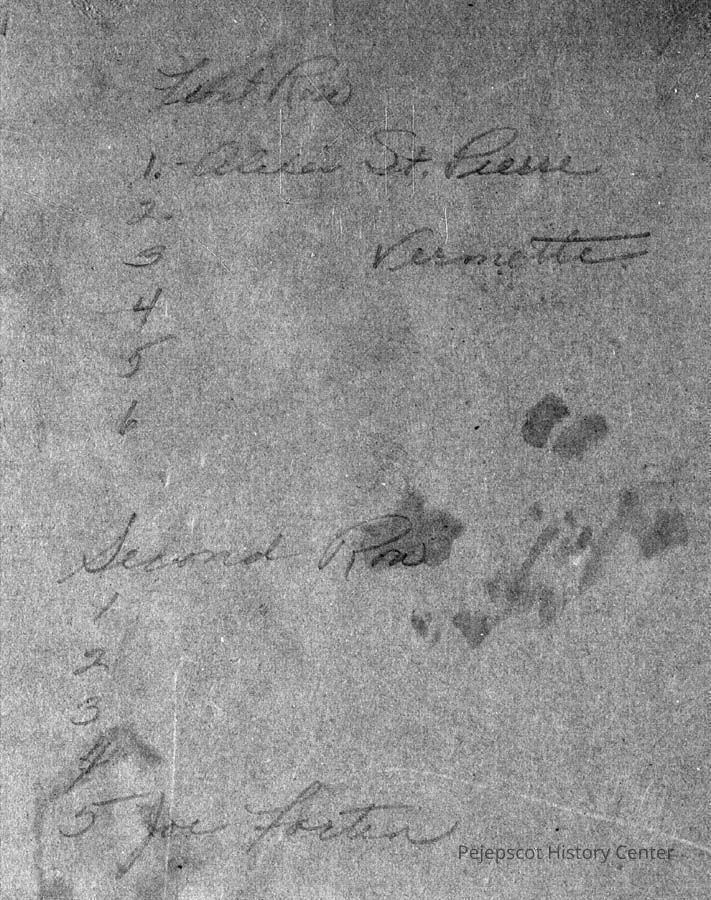 Front Row
1. - St. Pierre
2.
3 Vermette
4
5
6
Second Row
1
2
3
4
5 Joe Fortin
Pejepscot History Center